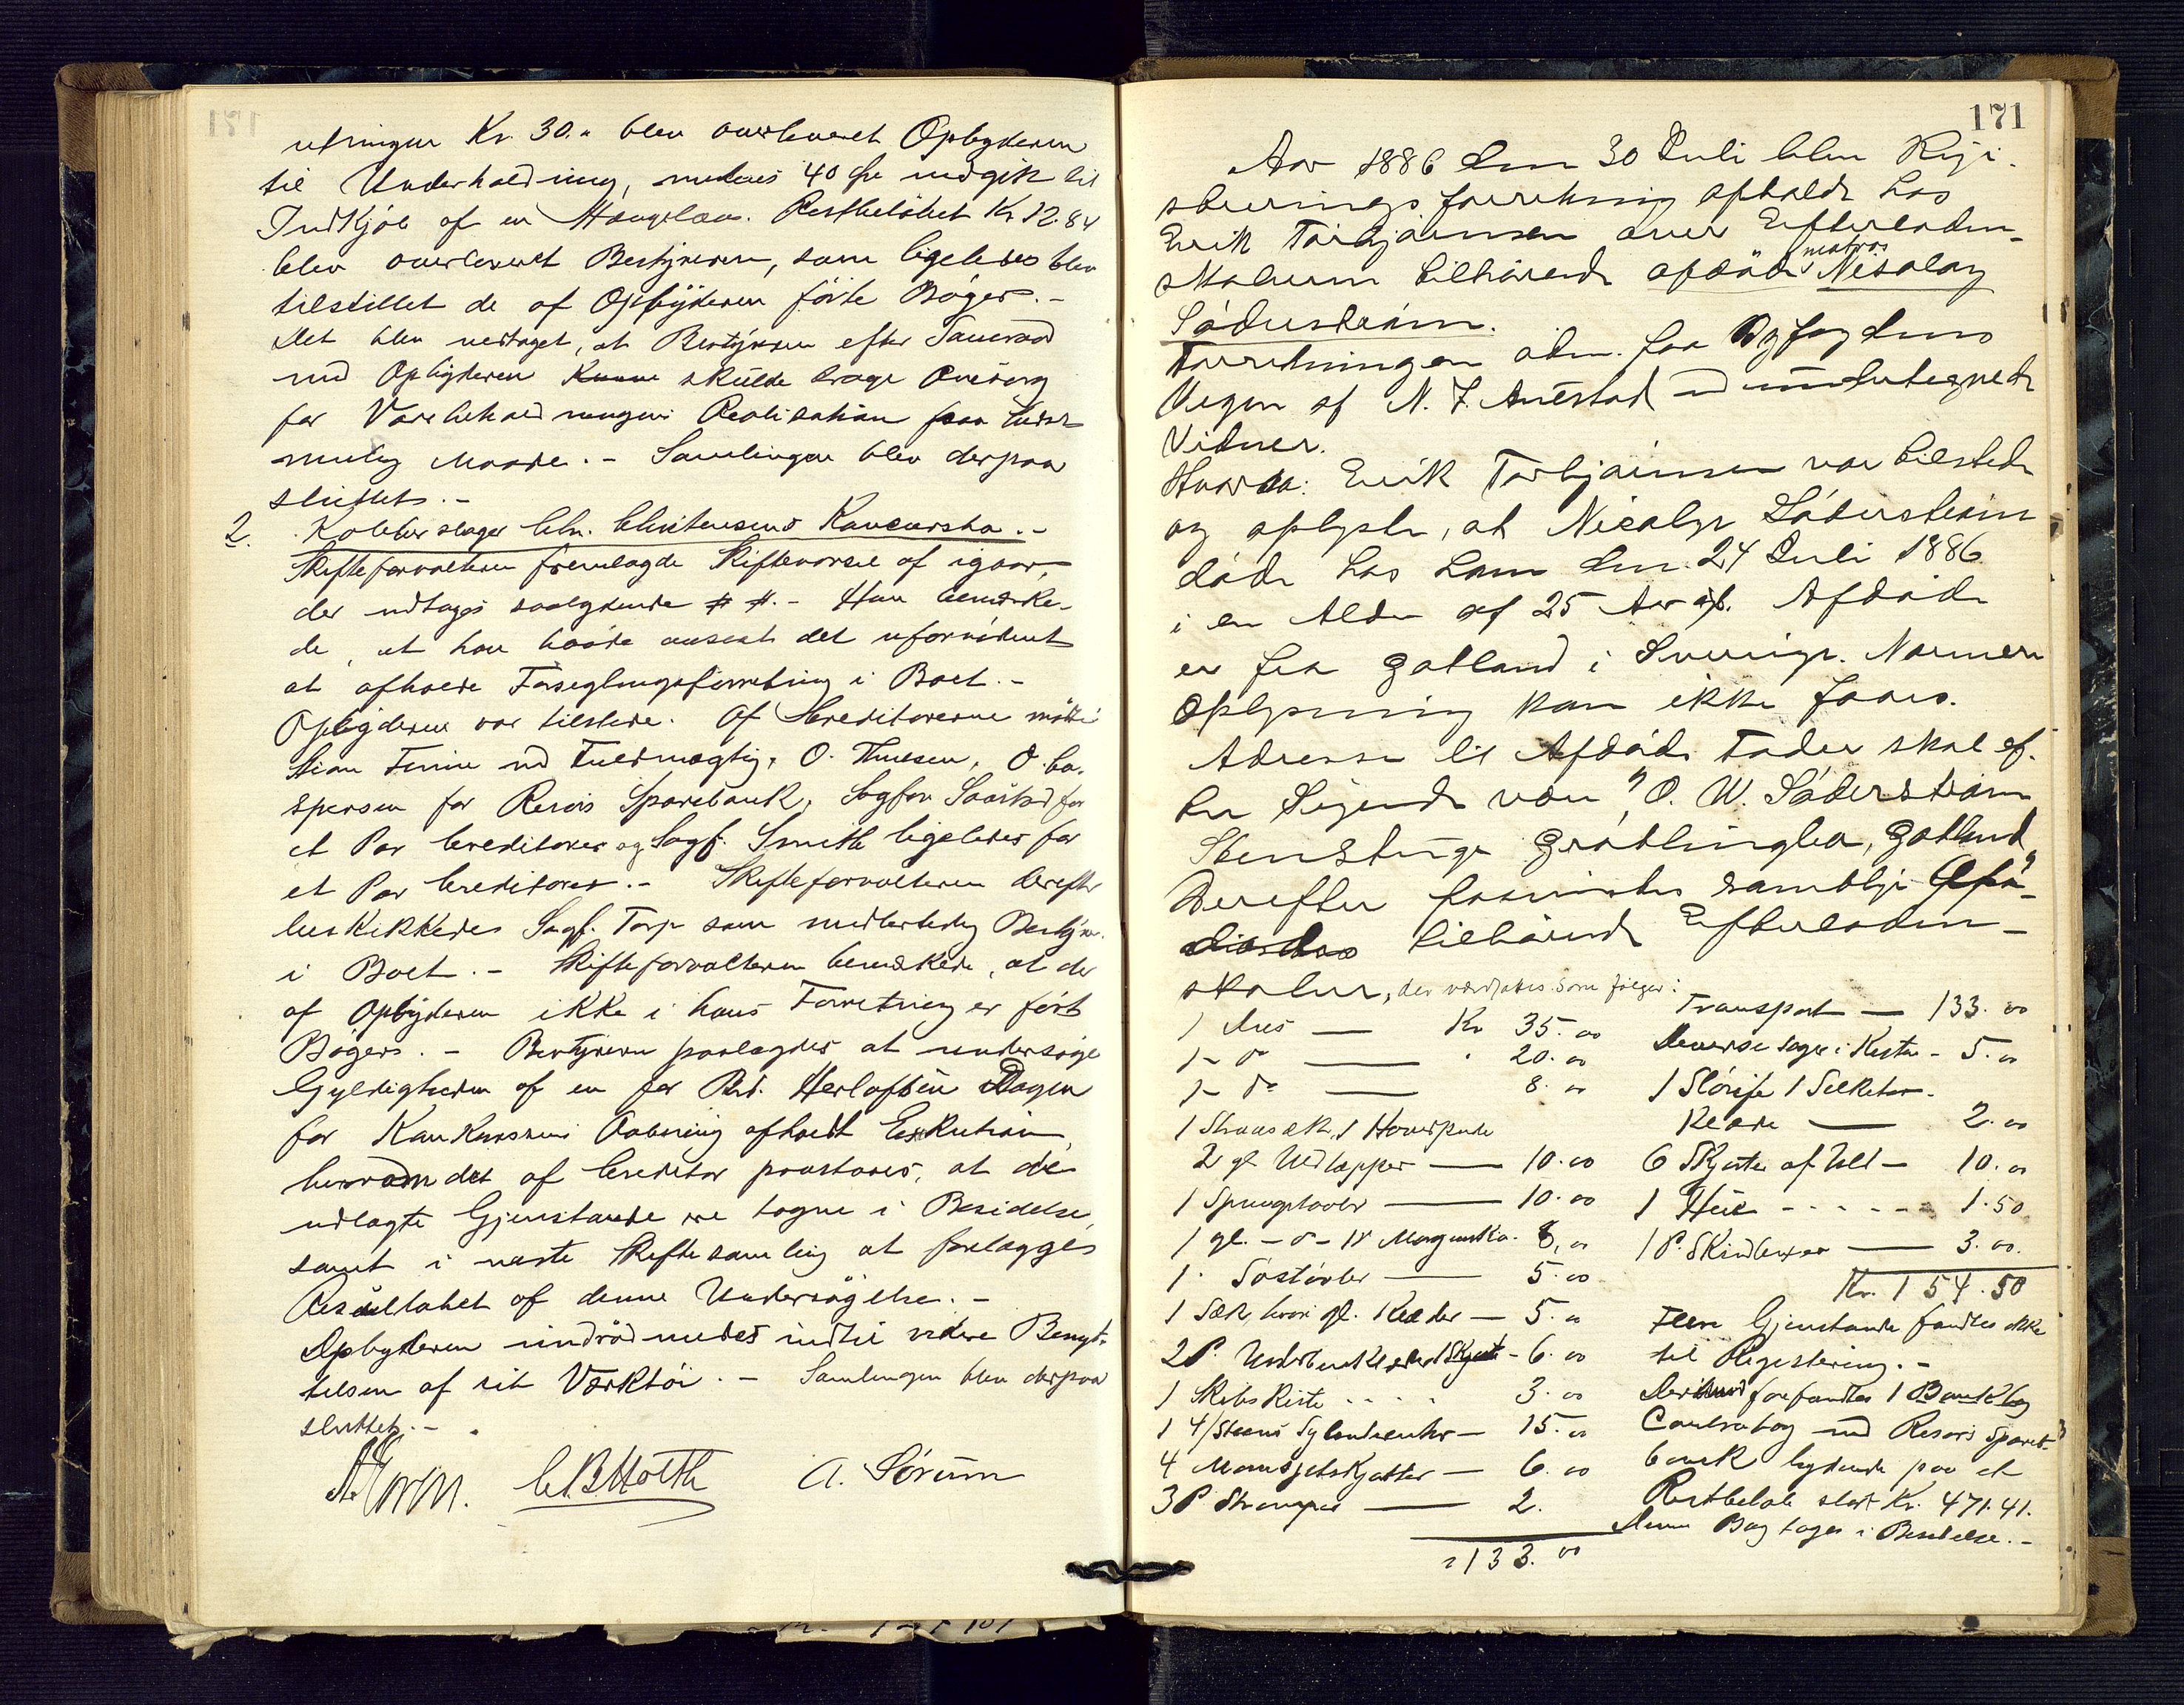 utningen Kr. 30.- blev overleveret Opbyderen
til Underholdning, medens 40 Kr medgik til
Indkjøb af en Hængelaas. Restbeløbet Kr 12.84
blev overleveret Bestyreren, som ligeledes blev
tilstillet de af Opbyderen førte Bøger.-
Det blev vedtaget, at Bestyreren efter Samraad
med Opbyderen skulde drage Omsorg
for Varebeholdningens Realisation paa bedst
mulig Maade.- Samlingen blev derpaa
sluttet.-
2. Kobberslager Chr. Christensens Konkursbo.-
Skifteforvalteren fremlagde Skiftevarsel af igaar,
der udtages saalydende # #.- Han bemærke-
de, at han havde anseet det ufornødent
at afholde Forseglingsforretning i Boet.-
Opbyderen var tilstede. Af Creditorerne mødte
Stian Finne ved Fuldmægtig, O. Thuesen, O. Ca-
spersen for Risørs Sparebank, Sagfør Saastad for
et Par Creditorer og Sagf. Smith ligeledes for
et Par Creditorer.- Skifteforvalteren derefter
beskikkedes Sagf. Torp som midlertidig Bestyrer
i Boet.- Skifteforvalteren bemærkede, at der
af Opbyderen ikke i hans Forretning er ført
Bøger.- Bestyreren paalagdes at undersøge
Gyldigheden af en for Rud. Herlofsen Dagen
for Konkursens Aabning afholdt Exekution,
hvorom det af Creditor paastaaes, at de
udlagte Gjenstande ere tagne i Besiddelse,
samt i næste Skiftesamling at forelægges
Resultatet af denne Undersøgelse.-
Opbyderen indrømmedes indtil videre Benyt-
telsen af sit Værktøi.- Samlingen blev derpaa
sluttet.-
C. B. Motth A. Sørum
171
Aar 1886 den 30 Juli blev Regi-
streringsforretning afholdt hos
Erik Torbjørnsen over Efterladen-
skaberne tilhørende afdøde matros Nicolay
Söderström.
Forretningen adm. for Byfogdens
Vegne af N. J. Anestad med undertegnede
Vidner.
Hvorda: Erik Torbjørnsen var tilstede
og oplyste, at Nicolay Söderström
døde hos ham den 24 Juli 1886
i en Alder af 25 Aar. Afdøde
er fra Gotland i Sverrige. Nærmere
Oplysning kan ikke faaes.
Adresse til Afdødes Fader skal ef-
ter Sigende være "O. W. Söderström
Stenstuge Gröttlingbo, Gotland"
Derefter foevistes samtlige Afdø-
des tilhørende Efterladen-
skaber, der værdsattes som følger:
1 Dres — Kr 35.00
1 - do — " 20.00
1 - do — 8.00
1 Straasæk, 1 Hovedpude
2 gl Uldtæpper — 10.00
1 Springstøvler — 10.00
1 gl. - do - 1 P Morgensko. 8.00
1 " Søstøvler — 5.00
1 Sæk, hvori gl. Klæder — 5.00
2 P. Underbenklæder 1 Skjorte - 6.00
1 Skibskiste - - - 3.00
1 4/Steens Sylinderuhr — 15.00
4 Mansjetskjorter — 6.00
3 P Strømper — 2.
" 133.00
Transport — 133.00
Diverse sager i Kisten - 5.00
1 Sløife 1 Silketør-
klæde — 2.00
6 Skjorter af Uld — 10.00
1 Hue - - - - - 1.50
1 P. Skindbuxer — 3.00.
Kr. 154.50
Flere Gjenstande fandtes ikke
til Registrering.-
Derimod forefandtes 1 Bankbog
Contrabog med Risørs Spare-
bank lydende paa et
Restbeløb stort Kr. 471.41.
Denne Bog tages i Besiddelse.-